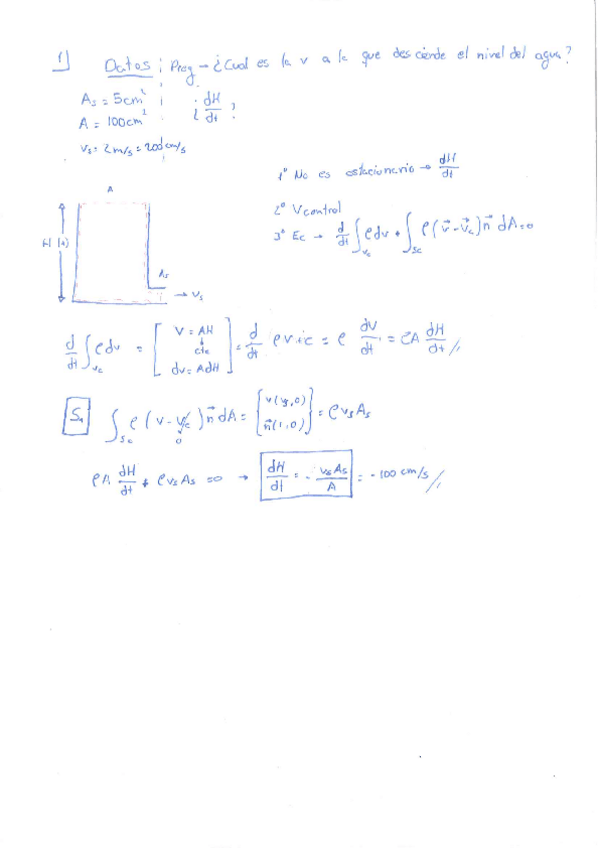 1) Datos ; Preg → ¿Cual es la v a la que desciende el nivel del agua?
As = 5cm²
¿ dH/dt ?
A = 100cm²
vs = 2 m/s = 200 cm/s
1º No es estacionario → dH/dt
A
2º V control
3º Ec → d/dt ∫vc ρ dv + ∫sc ρ (v⃗ - v⃗c) n⃗ dA = 0
H (t)
As
→ vs
d/dt ∫vc ρ dv = [ V = AH cte dv = A dH ] = d/dt ρ = ρ dV/dt = ρA dH/dt //
∫sc ρ (v - vc) n⃗ dA = { v(vs,0) n⃗(1,0) } = ρ vs As
0
ρA dH/dt + ρ vs As = 0 → dH/dt = - vs As / A = - 100 cm/s //